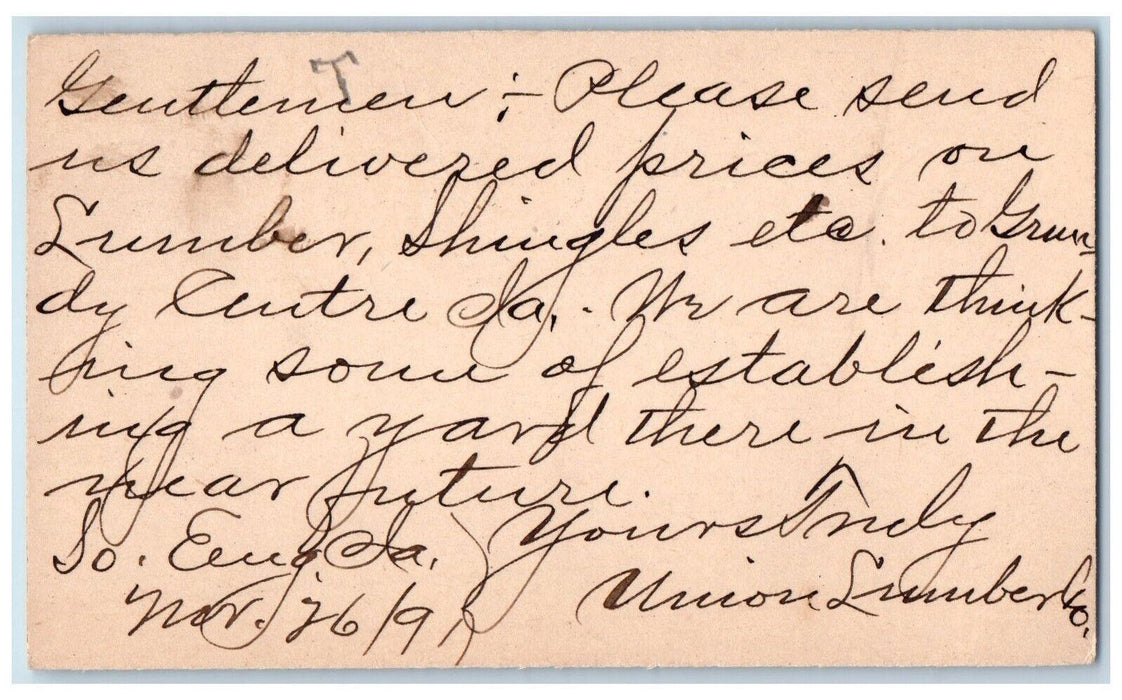 T
Gentlemen :- Please send
us delivered prices on
Lumber, Shingles etc. to Grun-
dy Centre Ia. - We are think-
ing some of establish-
ing a yard there in the
near future.
Yours Truly
So. Eng Ia.
Union Lumber Co.
26/91